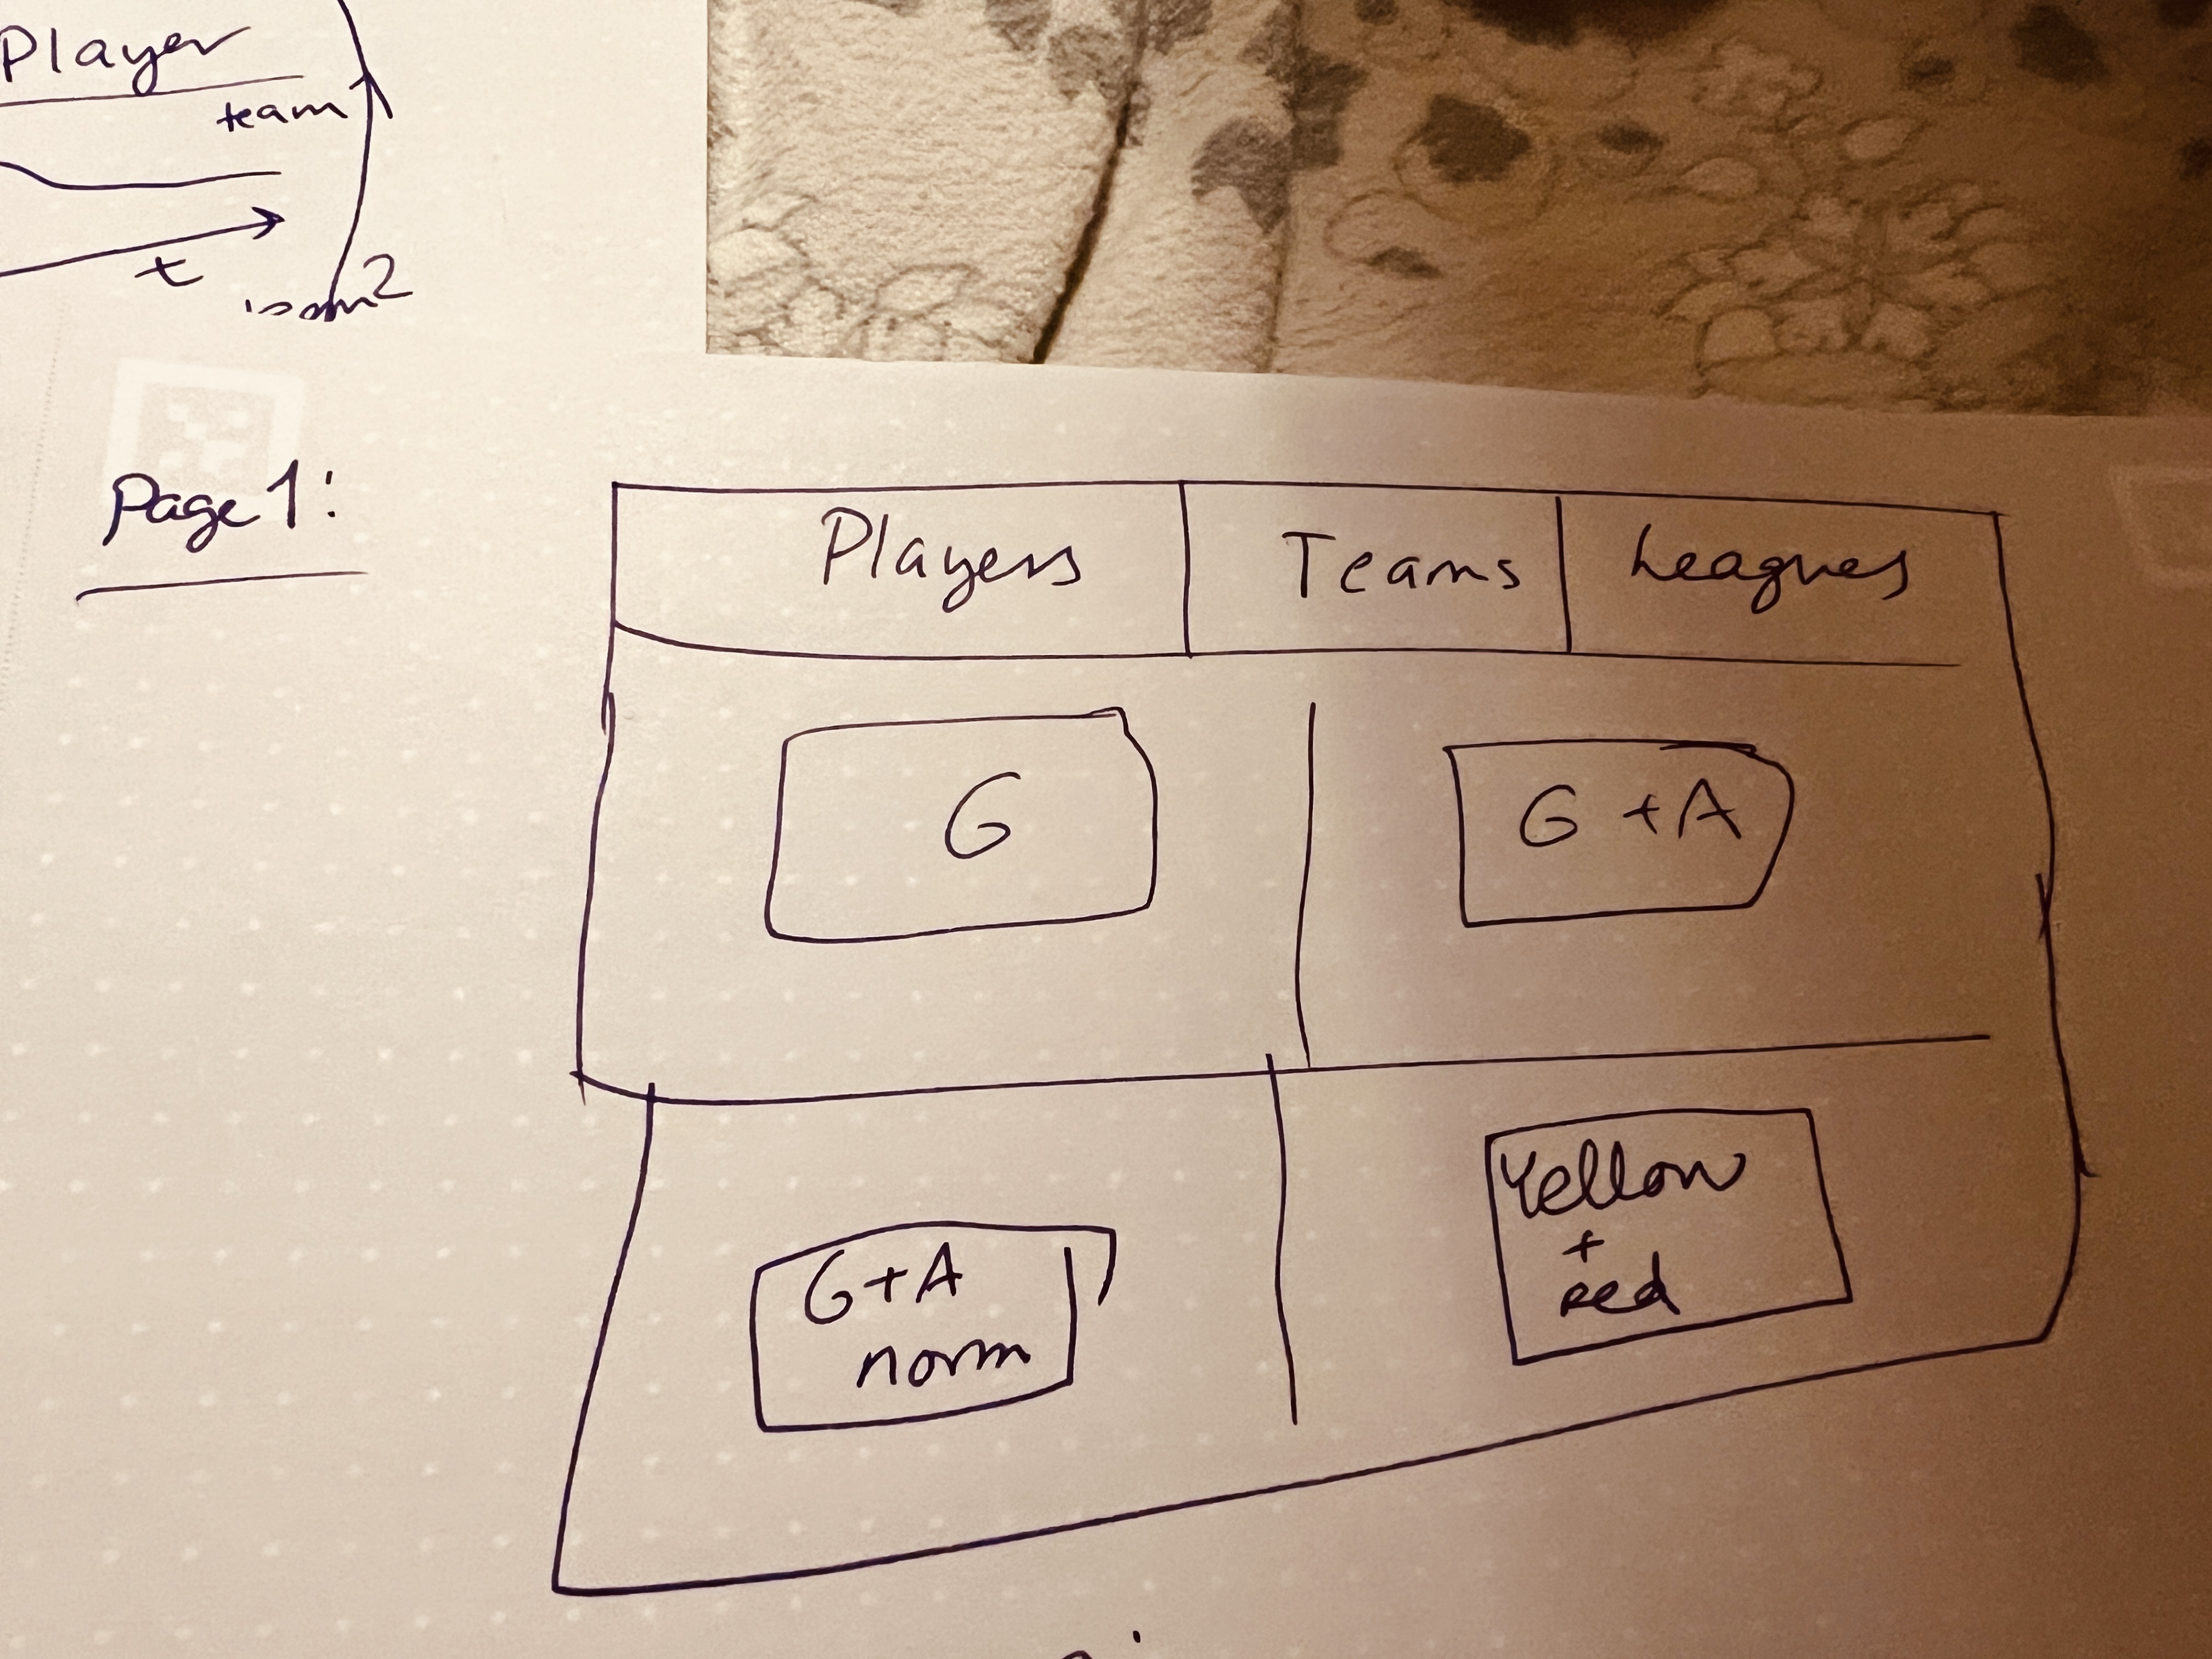 Player
team
t
Page 1:
Players Teams Leagues
G
G + A
G+A
norm
Yellow
+
red